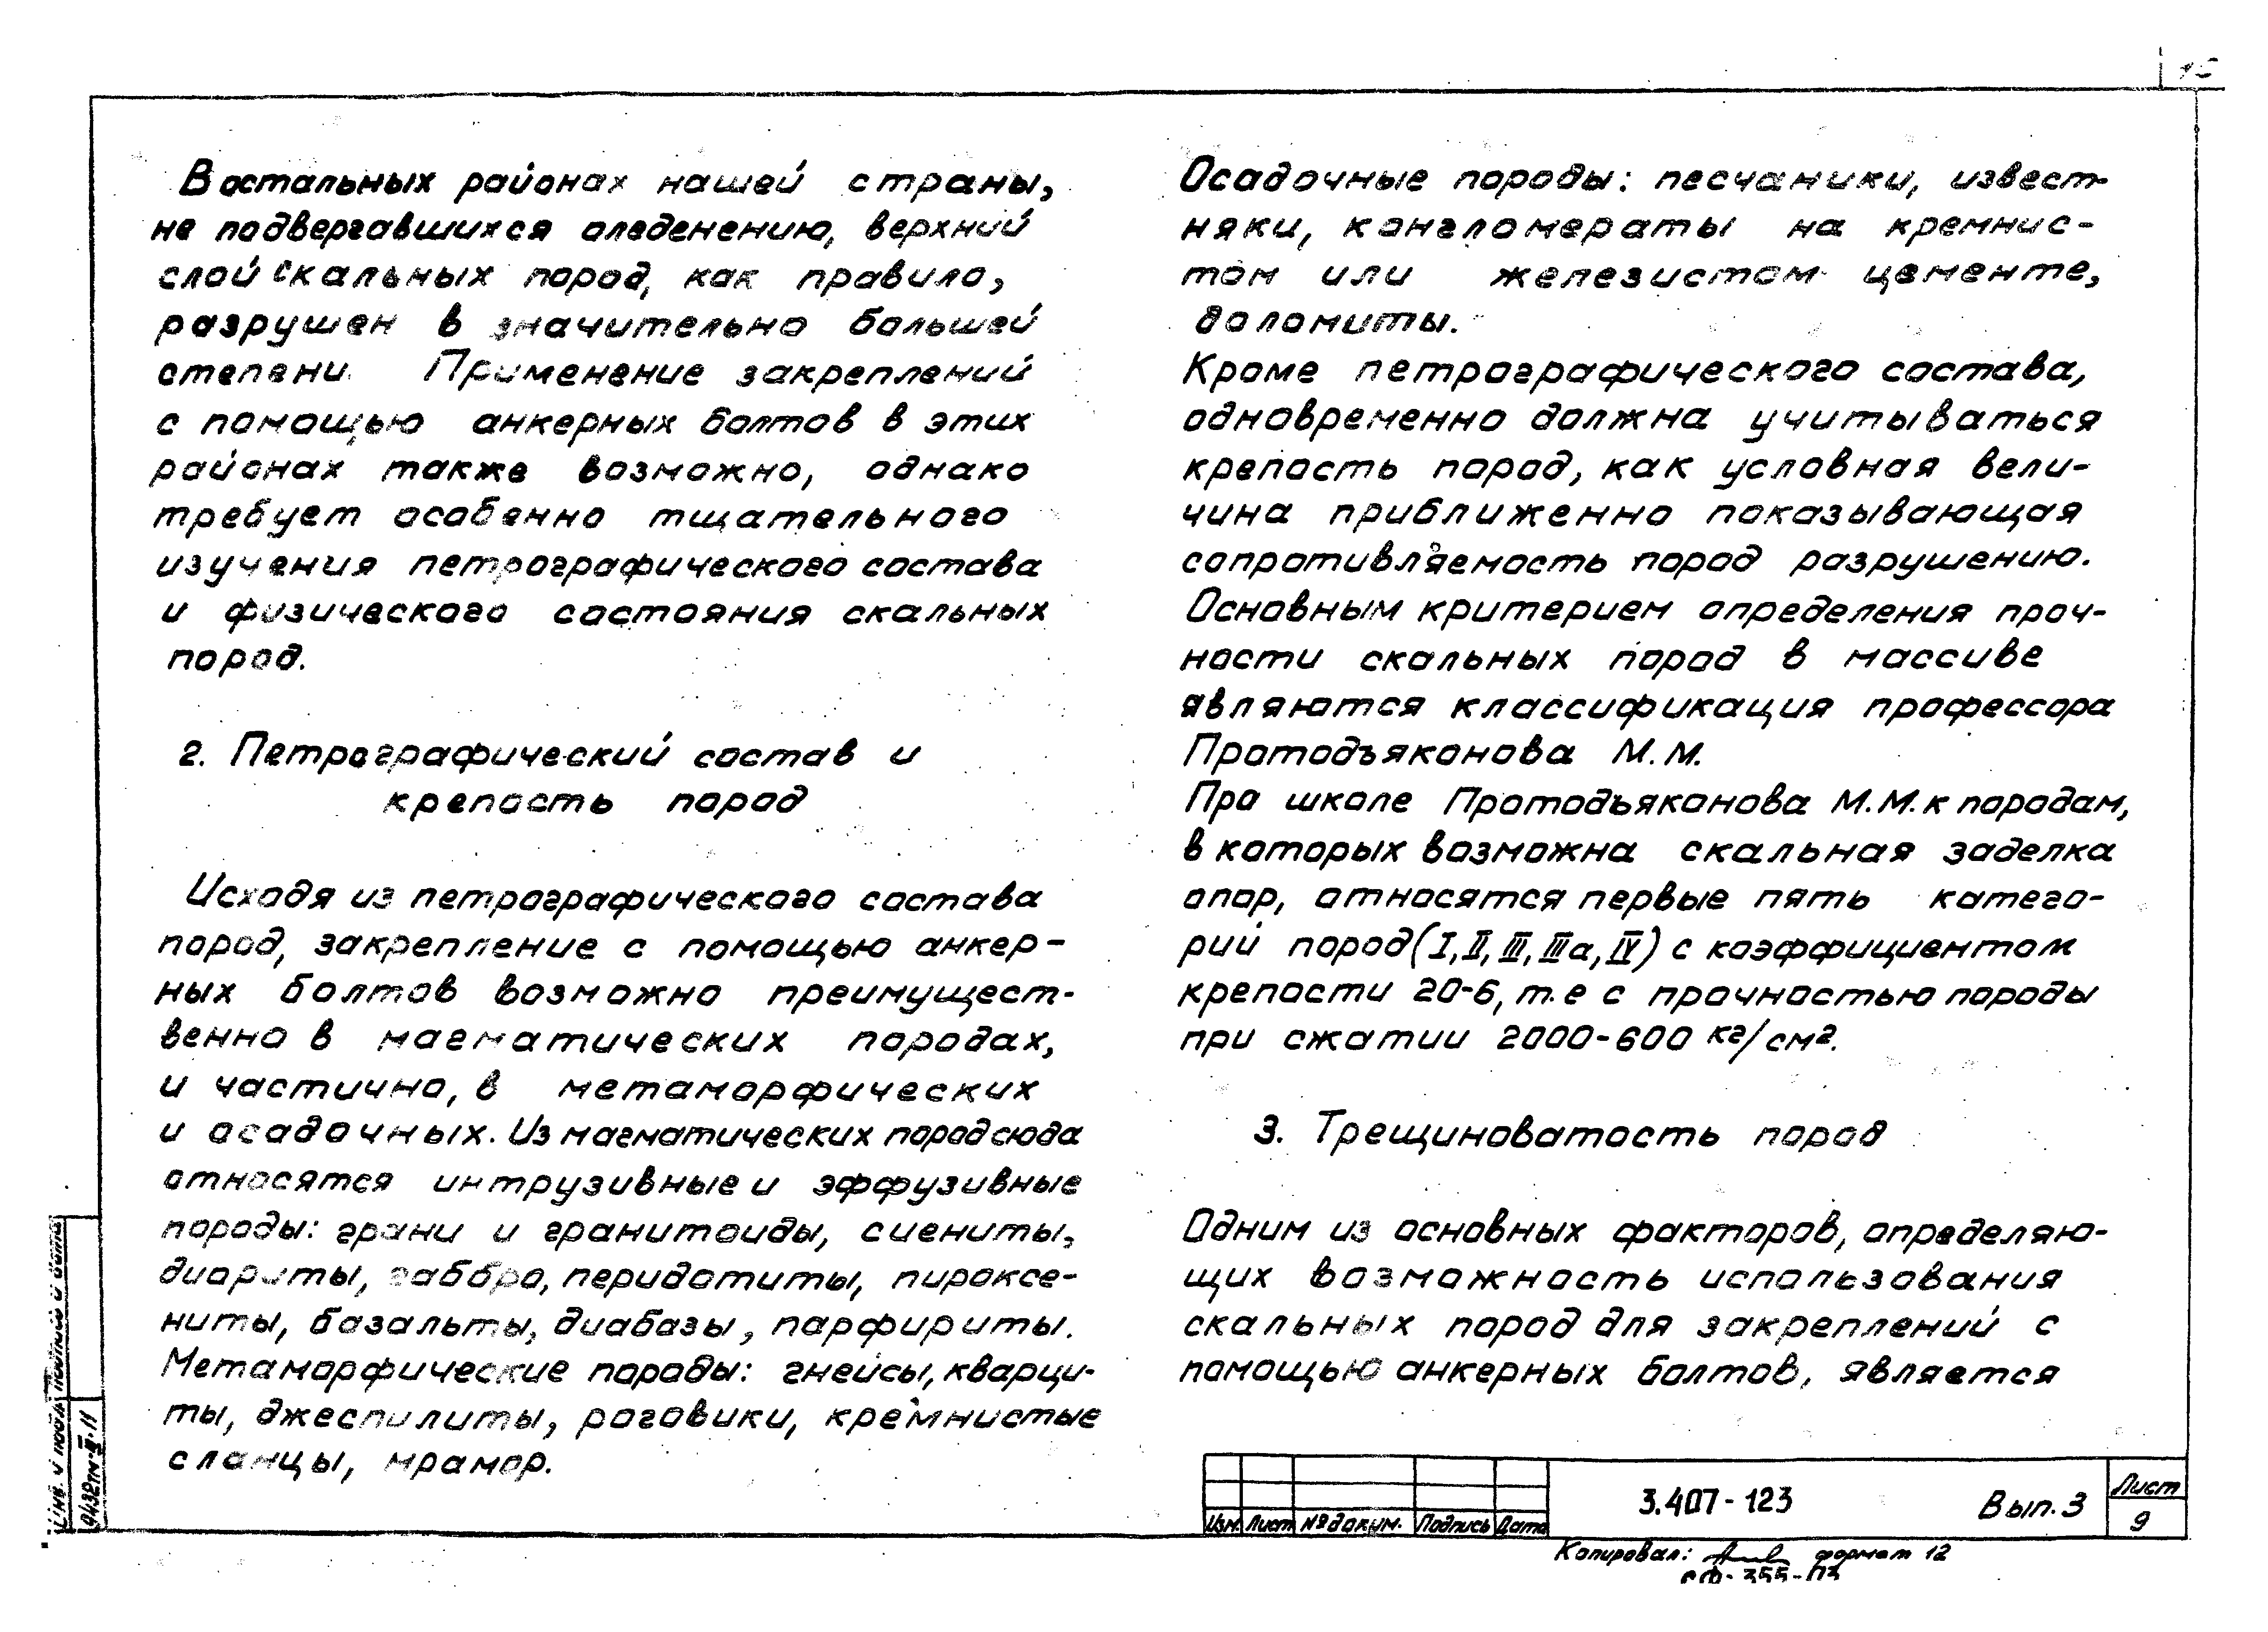 В остальных районах нашей страны,
не подвергавшихся оледенению, верхний
слой скальных пород, как правило,
разрушен в значительно большей
степени. Применение закреплений
с помощью анкерных болтов в этих
районах также возможно, однако
требует особенно тщательного
изучения петрографического состава
и физического состояния скальных
пород.
2. Петрографический состав и
крепость пород
Исходя из петрографического состава
пород, закрепление с помощью анкер-
ных болтов возможно преимущест-
венно в магматических породах,
и частично, в метаморфических
и осадочных. Из магматических пород сюда
относятся интрузивные и эффузивные
породы: грани и гранитоиды, сиениты,
диориты, габбро, перидотиты, пироксе-
ниты, базальты, диабазы, парфириты.
Метаморфические породы: гнейсы, кварци-
ты, джеспилиты, роговики, кремнистые
сланцы, мрамор.
Осадочные породы: песчаники, извест-
няки, конгломераты на кремнис-
том или железистом цементе,
доломиты.
Кроме петрографического состава,
одновременно должна учитываться
крепость пород, как условная вели-
чина приближенно показывающая
сопротивляемость пород разрушению.
Основным критерием определения проч-
ности скальных пород в массиве
являются классификация профессора
Протодъяконова М.М.
По школе Протодъяконова М.М. к породам,
в которых возможна скальная заделка
опор, относятся первые пять катего-
рий пород (I, II, III, IIIа, IV) с коэффициентом
крепости 20-6, т.е с прочностью породы
при сжатии 2000-600 кг/см².
3. Трещиноватость пород
Одним из основных факторов, определяю-
щих возможность использования
скальных пород для закреплений с
помощью анкерных болтов, является
Изм. Лист № докум. Подпись Дата
3.407-123 Вып. 3
Лист
9
Копировал: формат 12
СФ-355-03
Инв. № подл. Подпись и дата
9432тм-II-11